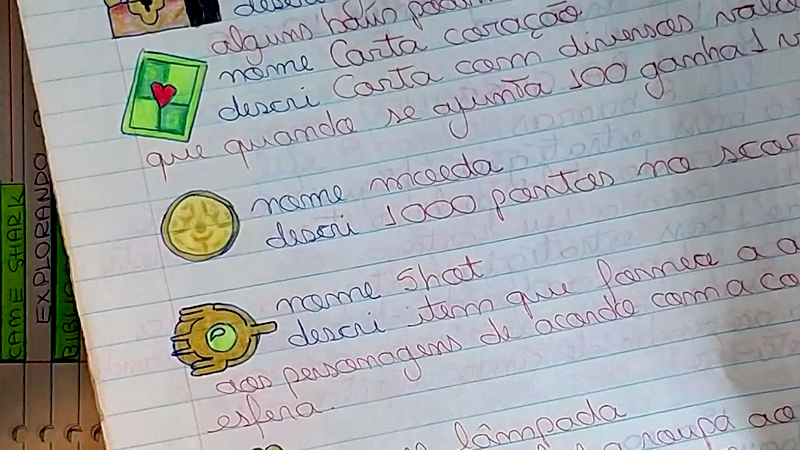 descri
alguns baús podem
nome Carta coração
descri Carta com diversos valo
que quando se ajunta 100 ganha 1 v
nome moeda
descri 1000 pontos no scor
nome Shot
descri item que fornece a a
aos personagens de acordo com a co
esfera.
lâmpada
roupa ao
GAME SHARK
EXPLORANDO